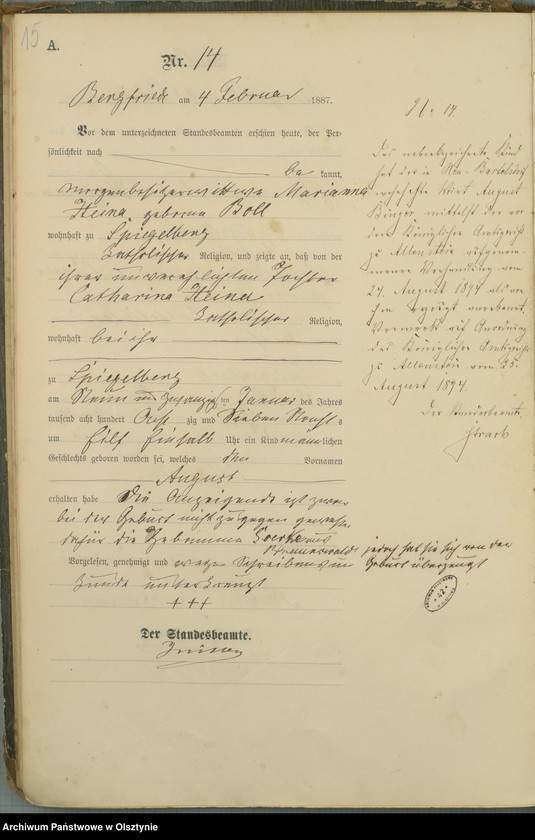 15
A.
Nr. 14
Bergfriede am 4 Februar 1887.
Vor dem unterzeichneten Standesbeamten erschien heute, der Per-
sönlichkeit nach
be kannt,
Morgenbesitzerwittwe Marianna
Heina geborene Boll
wohnhaft zu Spiegelberg
katholischer Religion, und zeigte an, daß von der
ihrer unverehlichten Tochter
Catharina Heina
katholischer Religion,
wohnhaft bei ihr
zu Spiegelberg
am Neun und zwanzigsten Januar des Jahres
tausend acht hundert Acht zig und Sieben Nachts
um Eilf einhalb Uhr ein Kind männlichen
Geschlechts geboren worden sei, welches den Vornamen
August
erhalten habe Die Anzeigende ist zwar
bei der Geburt nicht zugegen gewesen
dafür die Hebamme Goerke aus
jedoch hat sie sich von der
Geburt überzeugt
Vorgelesen, genehmigt und wegen Schreibensun
kunde unterkreuzt
+ + +
Der Standesbeamte.
No 14.
Das nebenbezeichnete Kind
hat der
Wirt August
mittelst der vor
dem Königlichen Amtsgericht
zu Allenstein aufgenom-
menen Verhandlung vom
24. August 1894 als von
ihm erzeugt anerkannt.
Vermerkt auf Anordnung
des Königlichen Amtsgerichts
zu Allenstein vom 25.
August 1894.
Der Standesbeamte.
42
Archiwum Państwowe w Olsztynie